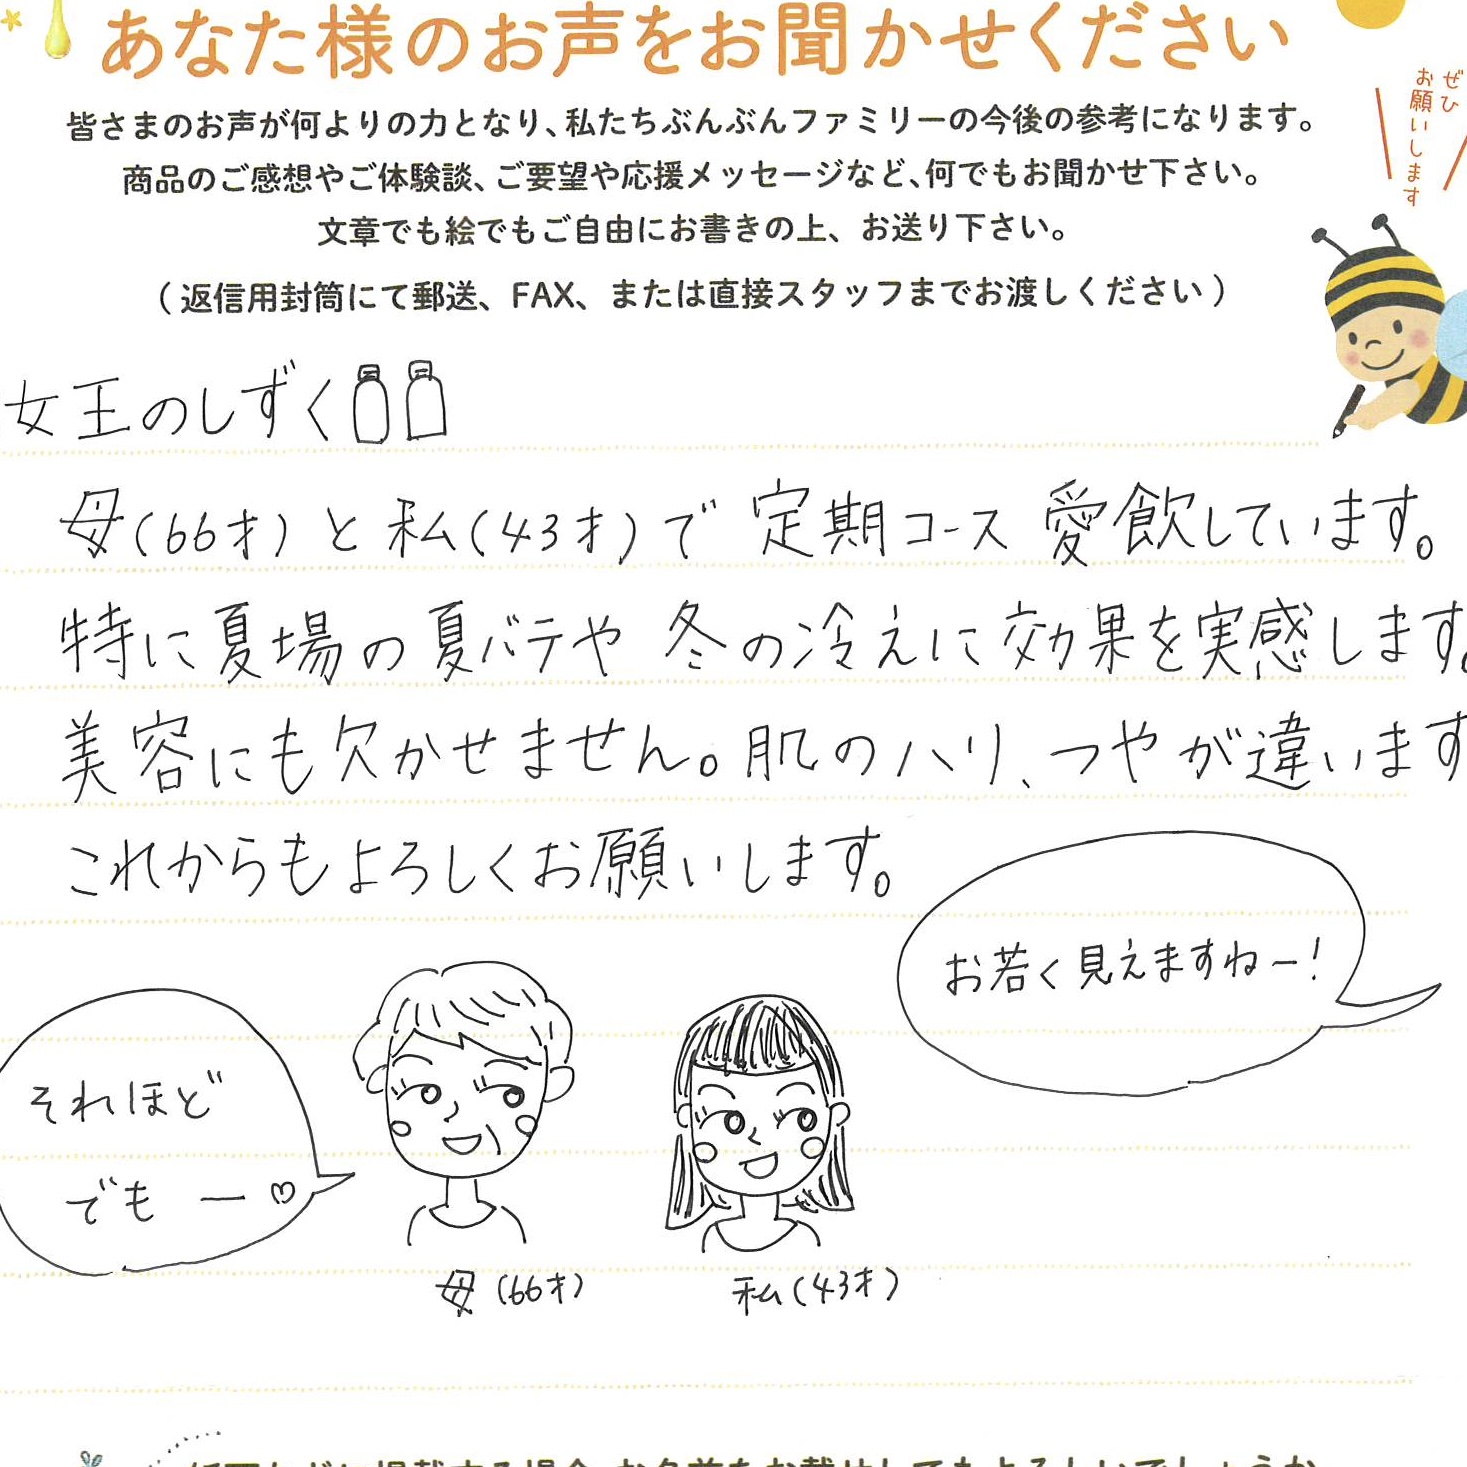 あなた様のお声をお聞かせください
ぜひ
お願いします
皆さまのお声が何よりの力となり、私たちぶんぶんファミリーの今後の参考になります。
商品のご感想やご体験談、ご要望や応援メッセージなど、何でもお聞かせ下さい。
文章でも絵でもご自由にお書きの上、お送り下さい。
(返信用封筒にて郵送、FAX、または直接スタッフまでお渡しください)
女王のしずく
母(66才)と私(43才)で定期コース愛飲しています。
特に夏場の夏バテや冬の冷えに効果を実感します。
美容にも欠かせません。肌のハリ、つやが違います
これからもよろしくお願いします。
お若く見えますねー!
それほど
でもー♡
母(66才)
私(43才)